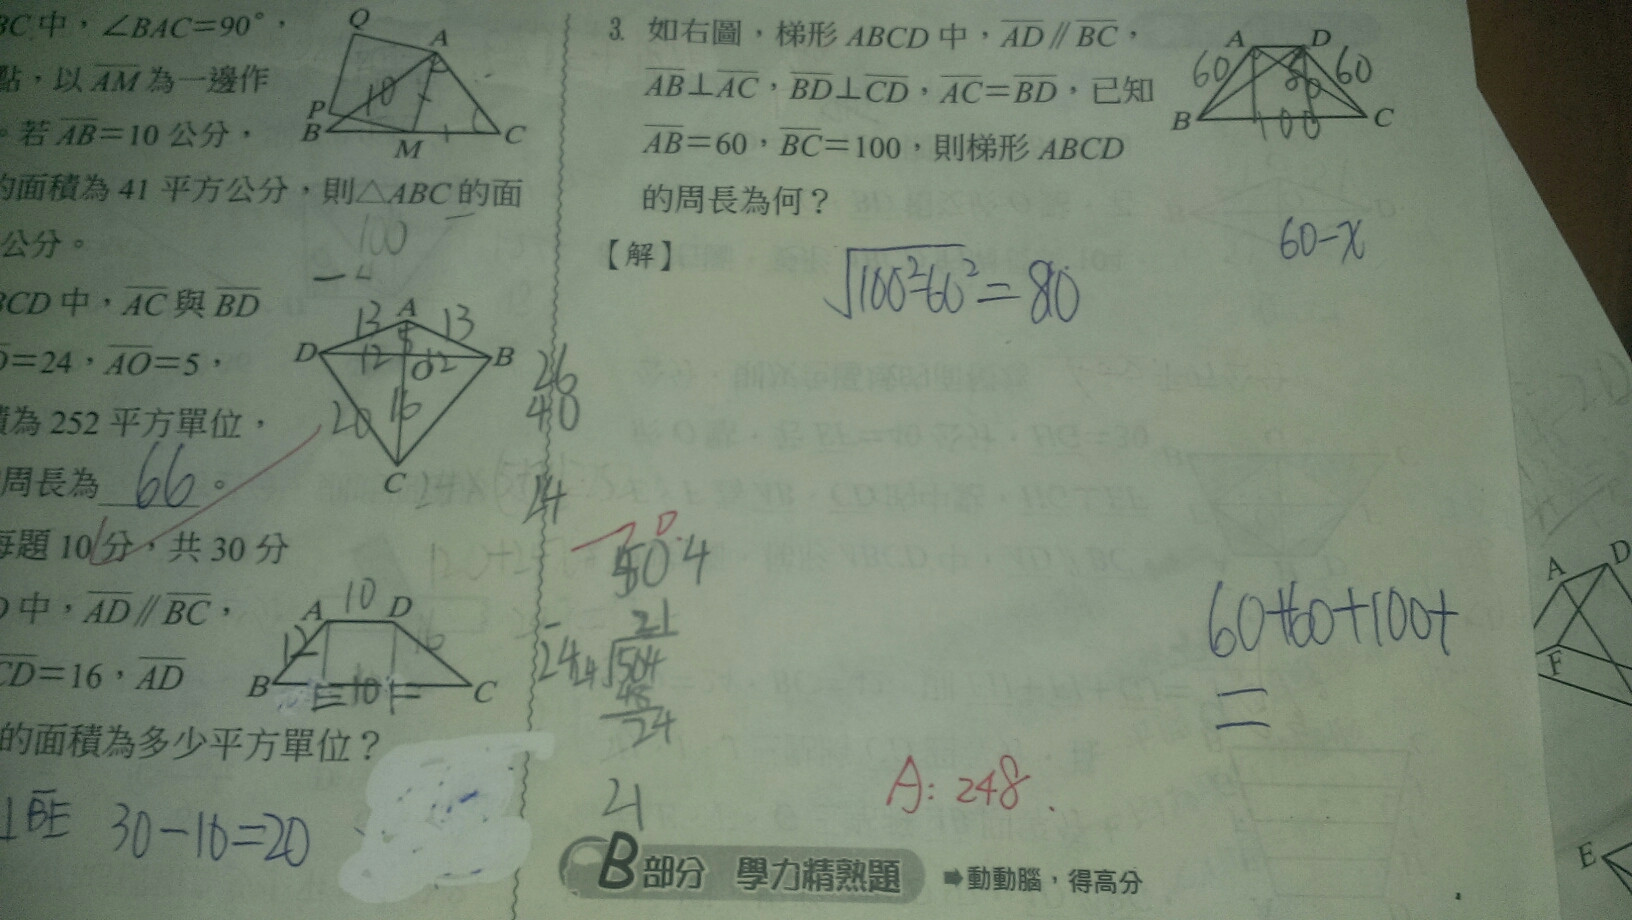 BC中，∠BAC=90°，
點，以 AM 為一邊作
。若 AB=10 公分，
的面積為 41 平方公分，則△ABC 的面
公分。
Q
A
P
B
M
C
10
100
-4
BCD 中，AC 與 BD
=24，AO=5，
積為 252 平方單位，
周長為 66 。
A
D
B
O
C
13
13
12
5
12
20
16
26
40
24
每題 10 分，共 30 分
中，AD∥BC，
CD=16，AD
的面積為多少平方單位？
A
10
D
12
16
B
10
C
⊥BE 30-10=20
504
21
24
504
48
24
21
3. 如右圖，梯形 ABCD 中，AD∥BC，
AB⊥AC，BD⊥CD，AC=BD，已知
AB=60，BC=100，則梯形 ABCD
的周長為何？
【解】
A
D
60
80
60
B
100
C
60-x
√100²-60² = 80
60+60+100+
=
A: 248.
B部分 學力精熟題 ➡動動腦，得高分
A
D
F
E